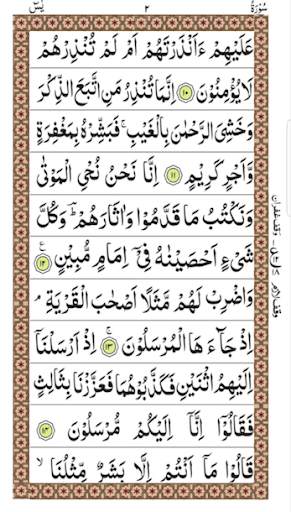 سُوْرَةُ ٢ يٰسٓ
عَلَيْهِمْ ءَاَنْذَرْتَهُمْ اَمْ لَمْ تُنْذِرْهُمْ
لَا يُؤْمِنُوْنَ ﴿۱۰﴾ اِنَّمَا تُنْذِرُ مَنِ اتَّبَعَ الذِّكْرَ
وَخَشِيَ الرَّحْمٰنَ بِالْغَيْبِ ۚ فَبَشِّرْهُ بِمَغْفِرَةٍ
وَّاَجْرٍ كَرِيْمٍ ﴿۱۱﴾ اِنَّا نَحْنُ نُحْيِ الْمَوْتٰى
وَنَكْتُبُ مَا قَدَّمُوْا وَاٰثَارَهُمْ ؕ وَكُلَّ
شَيْءٍ اَحْصَيْنٰهُ فِيْۤ اِمَامٍ مُّبِيْنٍ ﴿۱۲﴾
وَاضْرِبْ لَهُمْ مَّثَلًا اَصْحٰبَ الْقَرْيَةِ ۘ
اِذْ جَآءَهَا الْمُرْسَلُوْنَ ﴿۱۳﴾ اِذْ اَرْسَلْنَاۤ
اِلَيْهِمُ اثْنَيْنِ فَكَذَّبُوْهُمَا فَعَزَّزْنَا بِثَالِثٍ
فَقَالُوْۤا اِنَّاۤ اِلَيْكُمْ مُّرْسَلُوْنَ ﴿۱۴﴾
قَالُوْا مَاۤ اَنْتُمْ اِلَّا بَشَرٌ مِّثْلُنَا ۙ